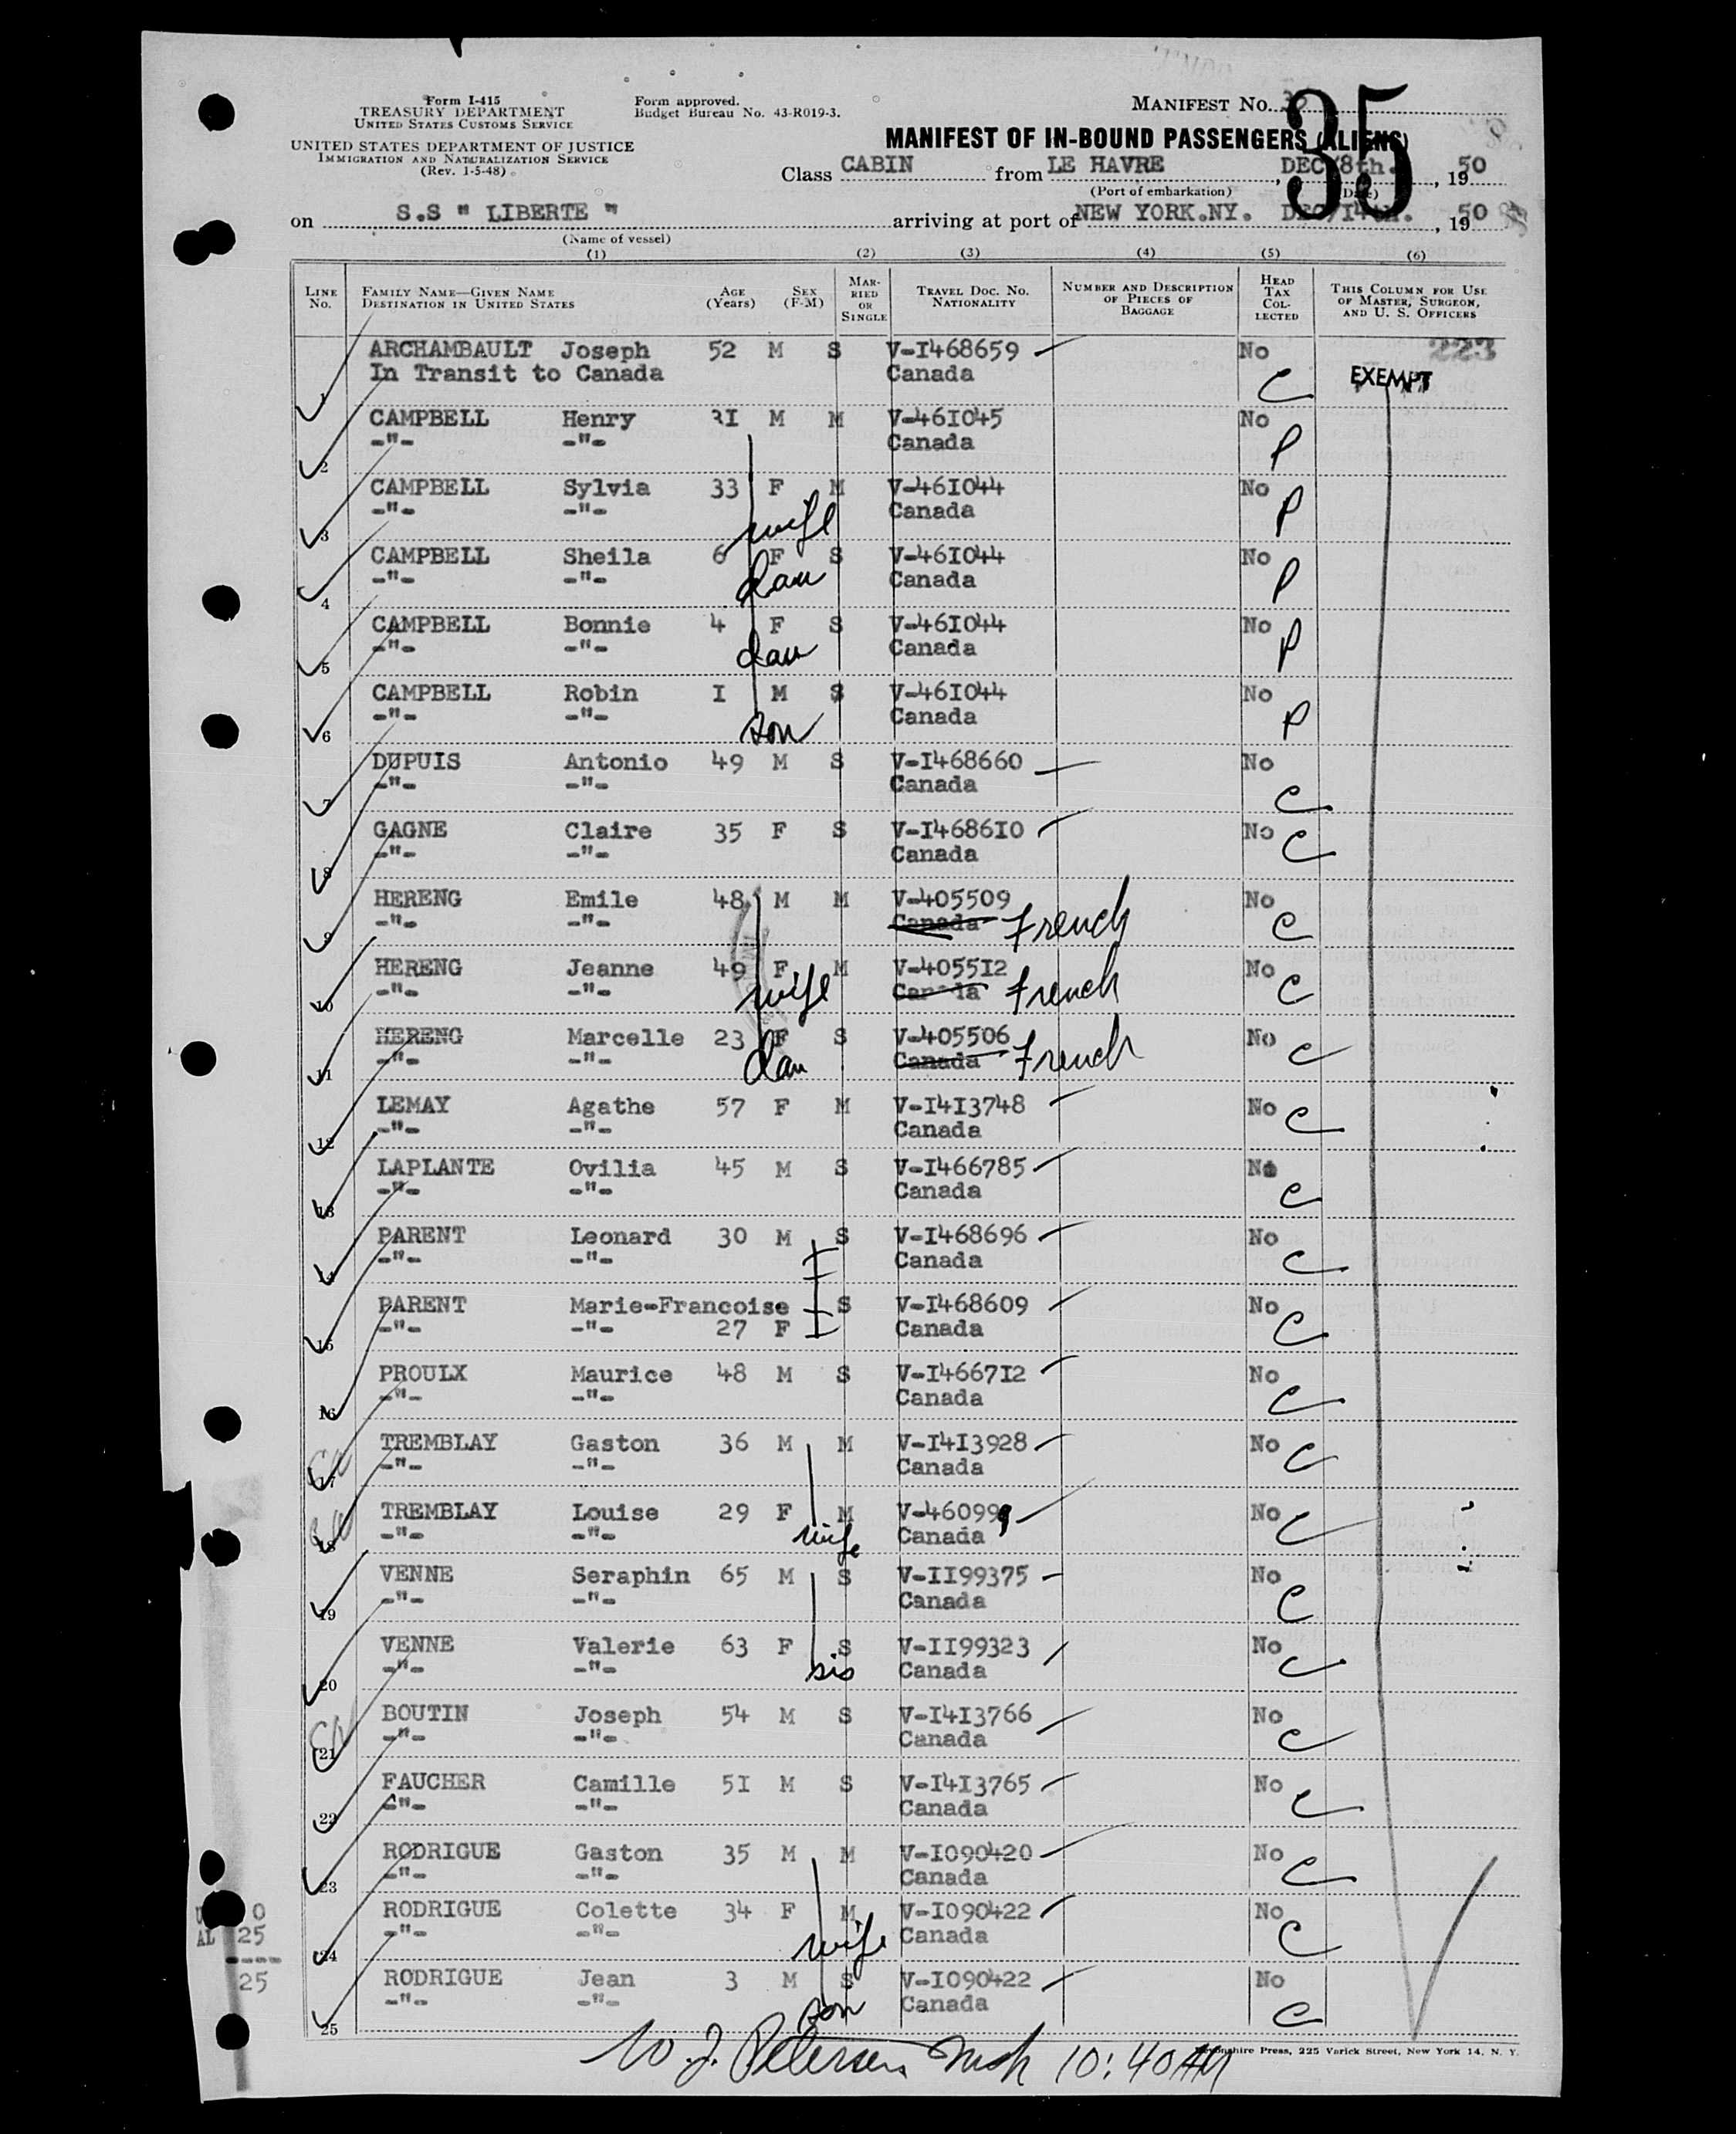 Form I-415
TREASURY DEPARTMENT
UNITED STATES CUSTOMS SERVICE
UNITED STATES DEPARTMENT OF JUSTICE
IMMIGRATION AND NATURALIZATION SERVICE
(Rev. 1-5-48)
Form approved.
Budget Bureau No. 43-R019-3.
MANIFEST No.
35
MANIFEST OF IN-BOUND PASSENGERS (ALIENS)
Class CABIN from LE HAVRE, DEC/8th., 1950
(Port of embarkation) (Date)
on S.S " LIBERTE " arriving at port of NEW YORK.NY. DEC/14th., 1950
(Name of vessel)
(1) (2) (3) (4) (5) (6)
LINE No. FAMILY NAME—GIVEN NAME DESTINATION IN UNITED STATES AGE (Years) SEX (F-M) MARRIED OR SINGLE TRAVEL DOC. NO. NATIONALITY NUMBER AND DESCRIPTION OF PIECES OF BAGGAGE HEAD TAX COLLECTED THIS COLUMN FOR USE OF MASTER, SURGEON, AND U. S. OFFICERS
ARCHAMBAULT Joseph 52 M S V-I468659 No 223
1 In Transit to Canada Canada C EXEMPT
CAMPBELL Henry 3I M M V-46I045 No
2 -"- -"- Canada P
CAMPBELL Sylvia 33 F M V-46I044 No
3 -"- -"- wife Canada P
CAMPBELL Sheila 6 F S V-46I044 No
4 -"- -"- dau Canada P
CAMPBELL Bonnie 4 F S V-46I044 No
5 -"- -"- dau Canada P
CAMPBELL Robin I M S V-46I044 No
6 -"- -"- son Canada P
DUPUIS Antonio 49 M S V-I468660 No
7 -"- -"- Canada C
GAGNE Claire 35 F S V-I4686I0 No
8 -"- -"- Canada C
HERENG Emile 48 M M V-405509 No
9 -"- -"- Canada French C
HERENG Jeanne 49 F M V-4055I2 No
10 -"- -"- wife Canada French C
HERENG Marcelle 23 F S V-405506 No
11 -"- -"- dau Canada French C
LEMAY Agathe 57 F M V-I4I3748 No
12 -"- -"- Canada C
LAPLANTE Ovilia 45 M S V-I466785 No
13 -"- -"- Canada C
PARENT Leonard 30 M S V-I468696 No
14 -"- -"- Canada C
PARENT Marie-Francoise S V-I468609 No
15 -"- -"- 27 F Canada C
PROULX Maurice 48 M S V-I4667I2 No
16 -"- -"- Canada C
TREMBLAY Gaston 36 M M V-I4I3928 No
17 -"- -"- Canada C
TREMBLAY Louise 29 F M V-460999 No
18 -"- -"- wife Canada C
VENNE Seraphin 65 M S V-II99375 No
19 -"- -"- Canada C
VENNE Valerie 63 F S V-II99323 No
20 -"- -"- sis Canada C
BOUTIN Joseph 54 M S V-I4I3766 No
21 -"- -"- Canada C
FAUCHER Camille 5I M S V-I4I3765 No
22 -"- -"- Canada C
RODRIGUE Gaston 35 M M V-I090420 No
23 -"- -"- Canada C
RODRIGUE Colette 34 F M V-I090422 No
24 -"- -"- wife Canada C
RODRIGUE Jean 3 M S V-I090422 No
25 -"- -"- son Canada C
0
AL 25
----
25
W. J. Petersen 10:40 AM
Press, 225 Varick Street, New York 14, N. Y.